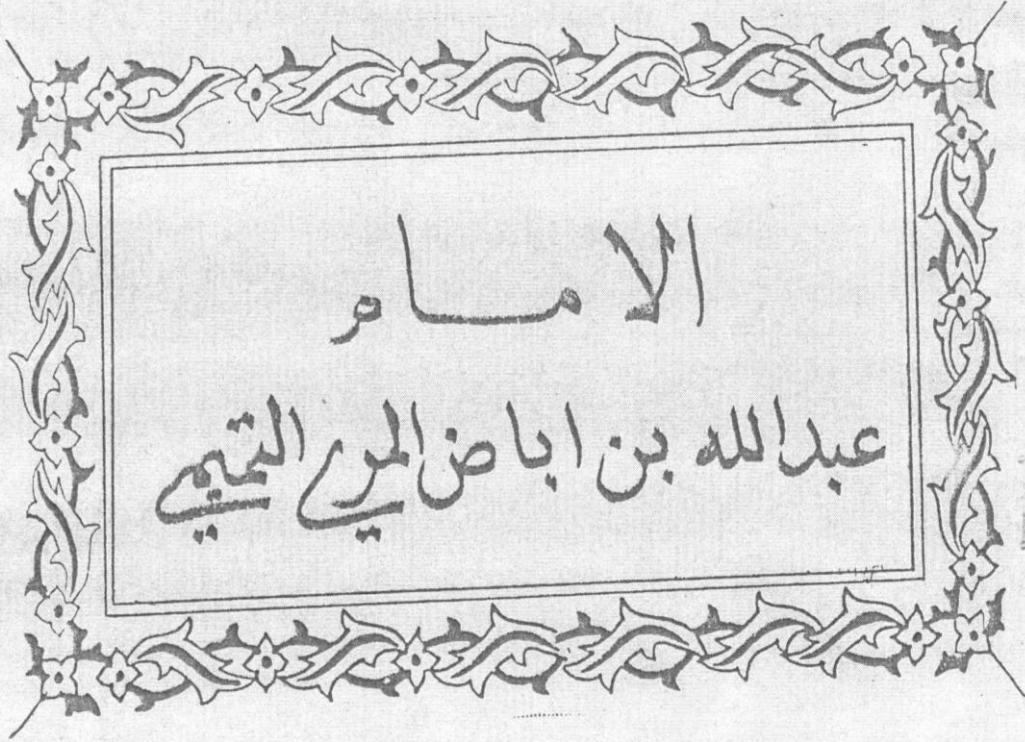 الامام
عبدالله بن اباض المري التميمي